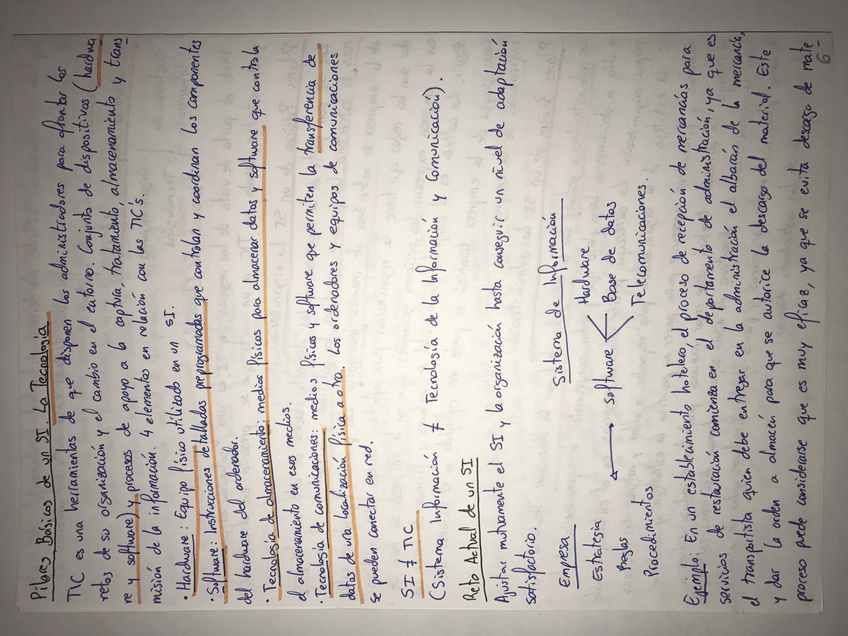 Pilares Básicos de un SI. La Tecnología
TIC es una herramientas de que disponen los administradores para afrontar los
retos de su organización y el cambio en el entorno. Conjunto de dispositivos (hardwa
re y software) y procesos de apoyo a la captura, tratamiento, almacenamiento y trans
misión de la información. 4 elementos en relación con las TIC's.
· Hardware: Equipo físico utilizado en un SI.
· Software: Instrucciones detalladas preprogramadas que controlan y coordinan los componentes
del hardware del ordenador.
· Tecnología de almacenamiento: medios físicos para almacenar datos y software que controla
el almacenamiento en esos medios.
· Tecnología de comunicaciones: medios físicos y software que permiten la transferencia de
datos de una localización física a otra. Los ordenadores y equipos de comunicaciones
se pueden conectar en red.
SI ≠ TIC
(Sistema Información ≠ Tecnología de la Información y Comunicación).
Reto Actual de un SI
Ajustar mutuamente el SI y la organización hasta conseguir un nivel de adaptación
satisfactorio.
Empresa Sistema de Información
Estrategia Hardware
Reglas Software Base de datos
Procedimientos Telecomunicaciones
Ejemplo: En un establecimiento hotelero, el proceso de recepción de mercancías para
servicios de restauración comienza en el departamento de administración, ya que es
el transportista quien debe entregar en la administración el albarán de la mercancía,
y dar la orden a almacén para que se autorice la descarga del material. Este
proceso puede considerarse que es muy eficaz, ya que se evita descarga de mate
6